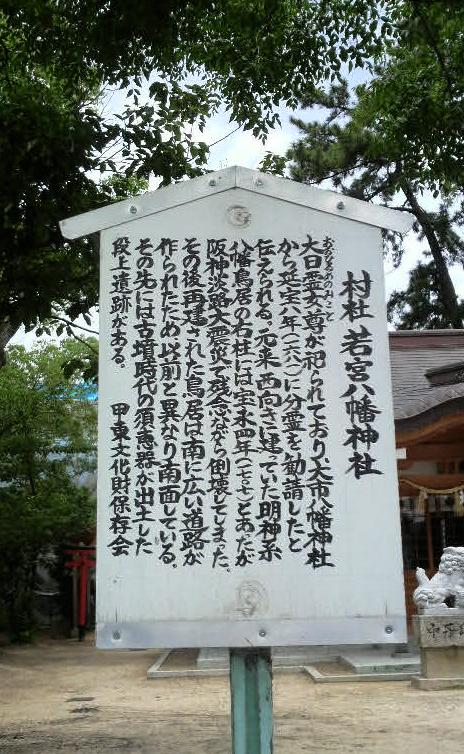 村社 若宮八幡神社
おおひるめのみこと
大日霊女尊が祀られており、大市八幡神社
から延宝八年(一六八一)に分霊を勧請したと
伝えられる。元来西向きに建っていた明神系
八幡鳥居の右柱には宝永四年(一七〇七)とあったが
阪神淡路大震災で残念ながら倒壊してしまった。
その後再建された鳥居は南に広い道路が
作られたため以前と異なり南面している。
その先には古墳時代の須恵器が出土した
段上遺跡がある。 甲東文化財保存会